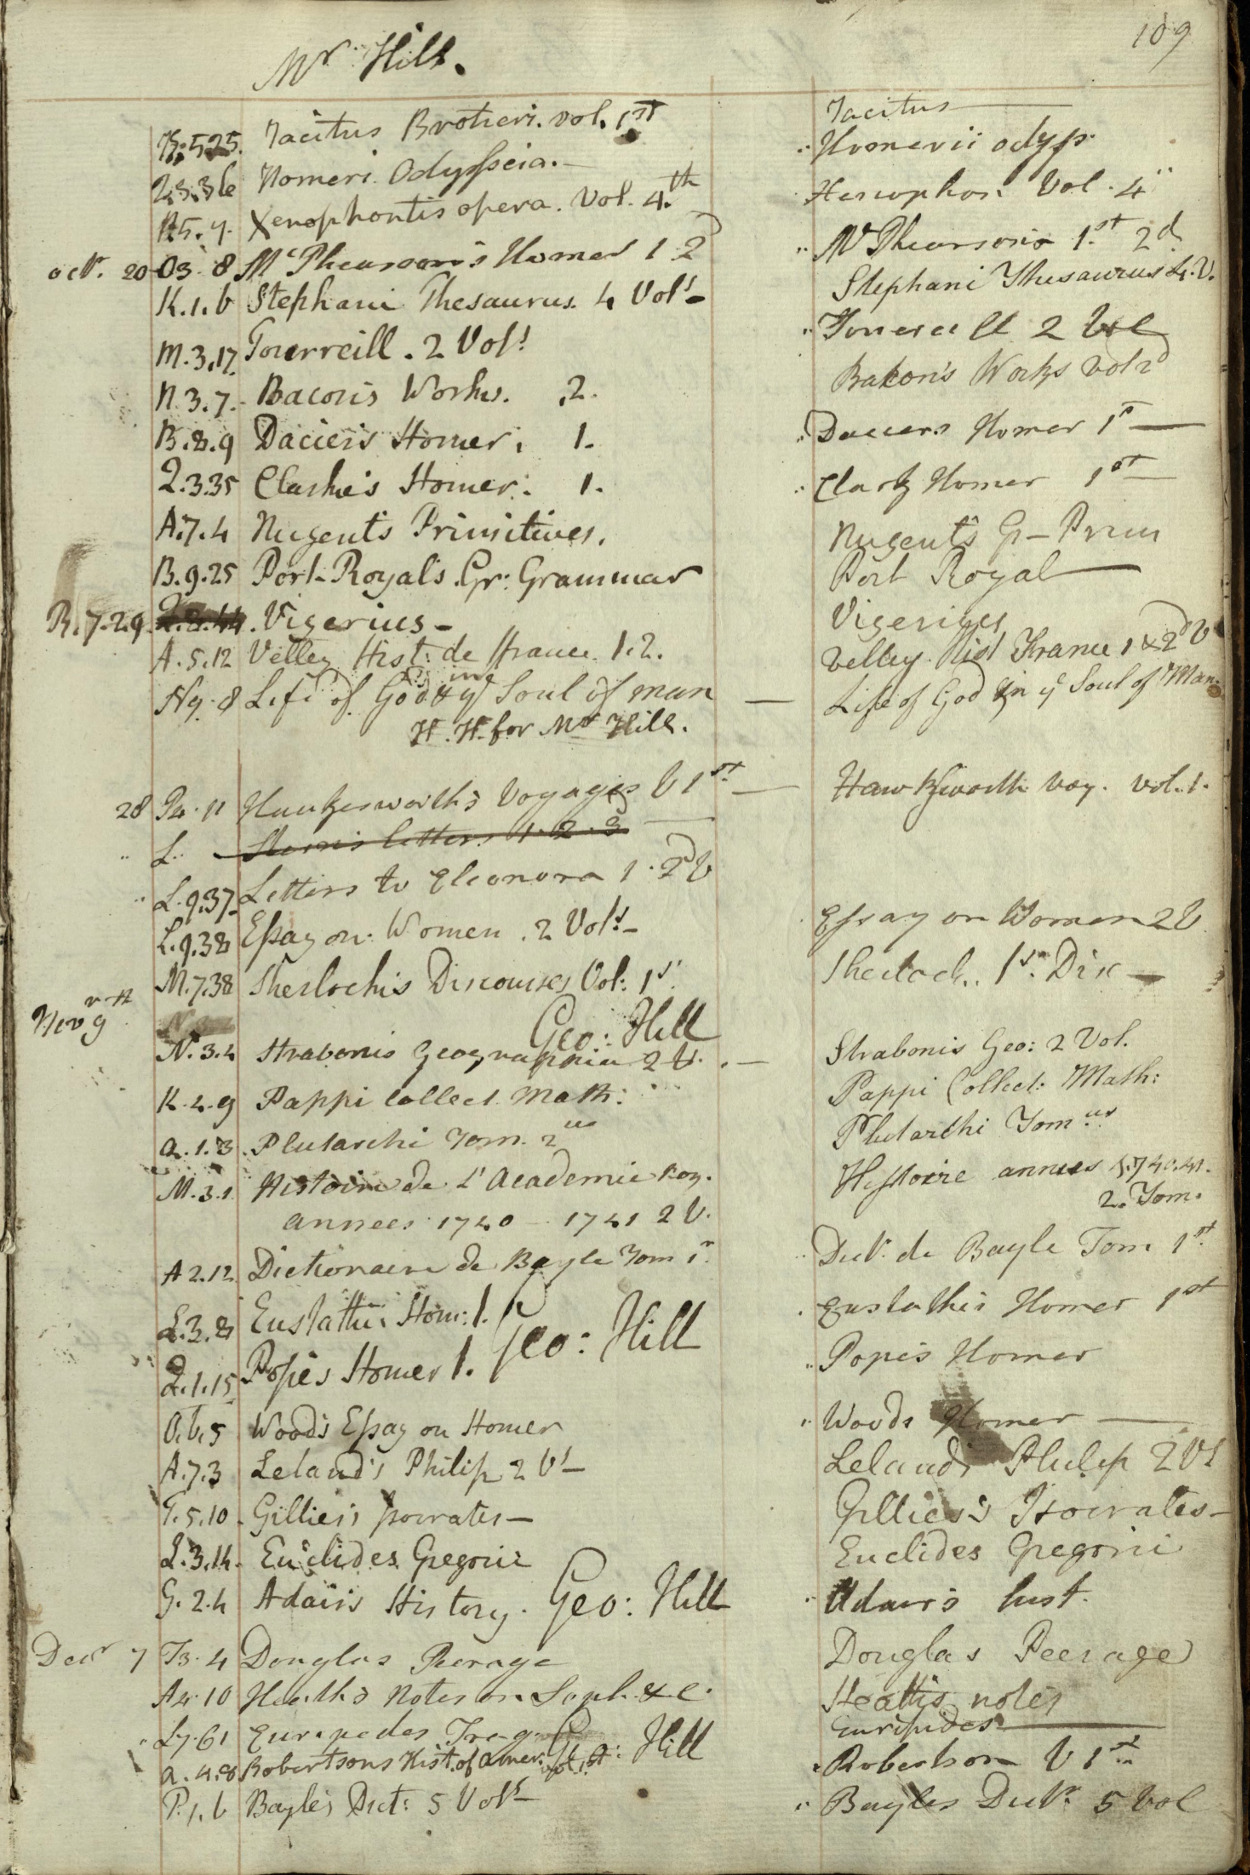 109
Mr Hill.
K.5.25. Tacitus Brotieri. vol. 1st Tacitus
Q.3.36 Homeri Odysseia. Homerii odyss.
R5.4. Xenophontis opera. Vol. 4.th Xenophon. Vol. 4
octr. 20 O3. 8 McPhearson's Homer 1 2d McPhearson's 1.st 2d.
K.1.6 Stephani Thesaurus. 4 Vols Stephani Thesaurus 4.V.
M.3.17 Tourreill. 2 Vols Toureill 2 Vol
N.3.7. Bacon's Works. 2. Bakon's Works vol 2d
B.8.9 Dacier's Homer. 1. Daciers Homer 1st
Q.3.35 Clarke's Homer. 1. Clark Homer 1st
A.7.4 Nugent's Primitives. Nugent's G- Prim
B.9.25 Port-Royal's Gr: Grammar Port Royal
R.7.29. Vigerius Vigerius
A.5.12 Velley Hist: de France. 1.2. Velley Hist France 1 & 2d V
N9. 8 Life of God in ye Soul of man Life of God in ye Soul of Man.
H. H. for Mr Hill.
28 P4. 11 Hawkesworth's Voyages V 1st Hawkesworth voy. vol. 1.
L. letters 1. 2. 3
L.9.37 Letters to Eleonora 1. 2d V
L.9.38 Essay on Women. 2 Vols Essay on Women 2 V.
M.7.38 Sherlock's Discourses Vol: 1st Sherlock. 1st Dis
Geo: Hill
Novr 9th N.3.4 Strabonis Geographia 2 V. Strabonis Geo: 2 Vol.
K.4.9 Pappi Collect. Math: Pappi Collect: Math:
a.1.3 Plutarchi Tom. 2us Plutarchi Tom us
M.3.1 Histoire de L'Academie Roy. Histoire annees 1740.41.
annees 1740 - 1741 2 V. 2. Tom.
A2.12 Dictionaire de Bayle Tom 1r. Dict. de Bayle Tom 1st
L.3.8 Eustathii Hom: 1. Eustathii Homer 1st
Q.1.15 Pope's Homer 1. Geo: Hill Popes Homer
O.6.5 Wood's Essay on Homer Woods Homer
A.7.3 Leland's Philip 2 Vs Lelands Philip 2 Vs
T.5.10 Gillies's Isocrates Gillies's Isocrates
L.3.14. Euclides Gregorii Euclides Gregorii
G.2.4 Adair's History. Geo: Hill Adair's hist.
Decr 7 T3. 4 Douglas Peerage Douglas Peerage
A4.10 Heath's Notes on Soph. &c. Heath's notes
L7.61 Euripedes Trag. Geo: Hill Euripides
a.4.8 Robertsons Hist. of Amer. Vol. 1st Robertson V 1st
P.1.6 Bayle's Dict: 5 Vols Bayles Dict. 5 Vol